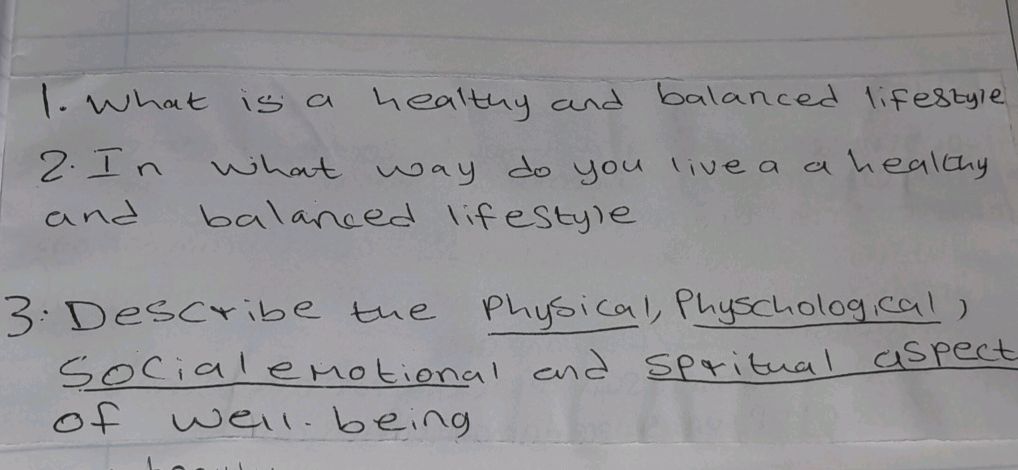 1. What is a healthy and balanced lifestyle
2. In what way do you live a a healthy
and balanced lifestyle
3. Describe the Physical, Physchological,
Social emotional and Spritual aspect
of well-being